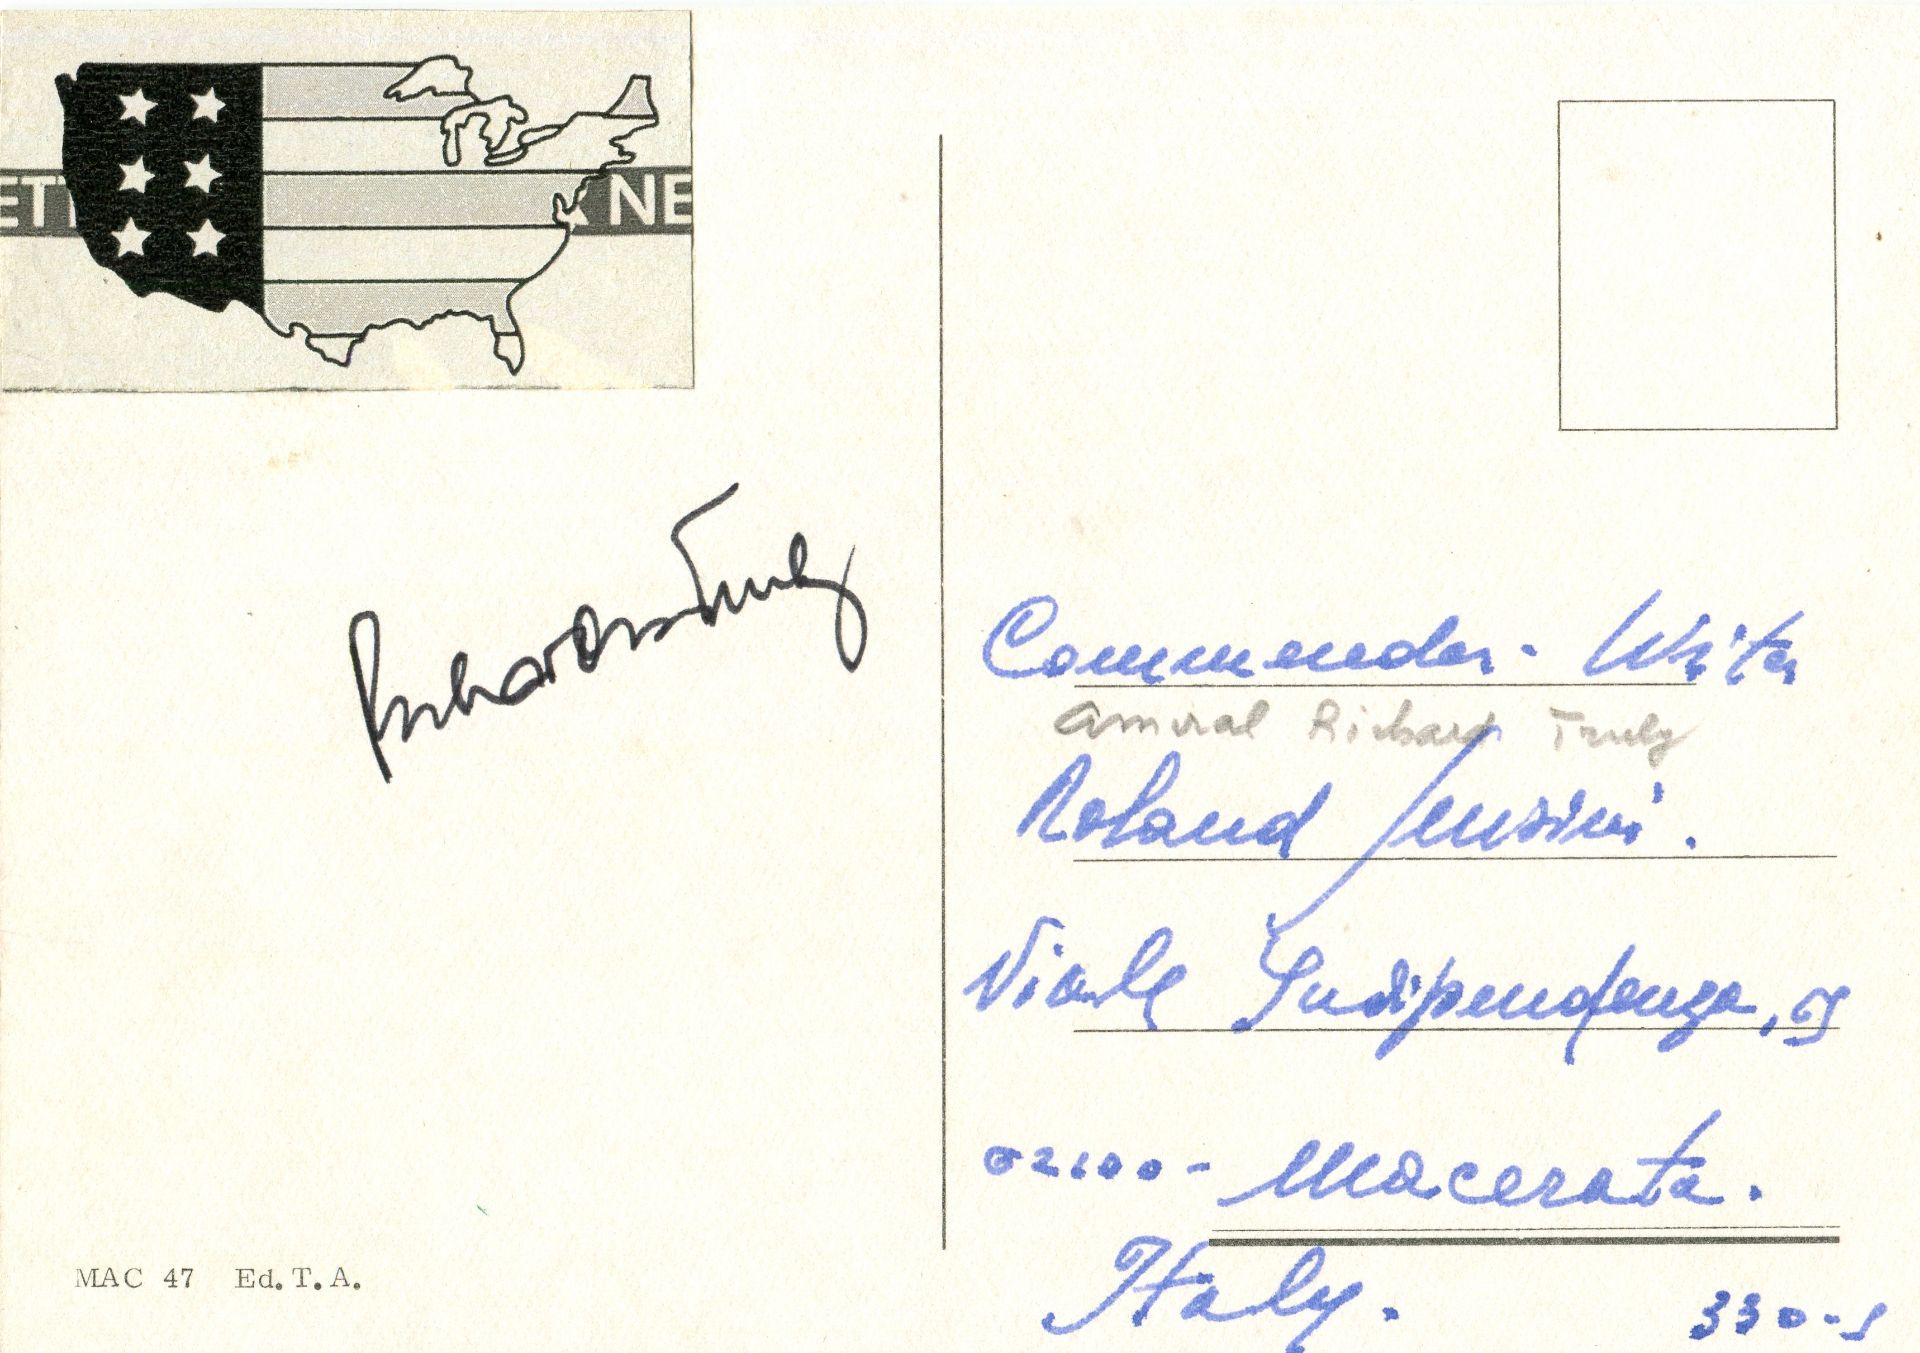 ETT NE
Richard Truly
Commender. Writer
amiral Richard Truly
Roland
Viale Indipendenza,
02100 - Macerata.
Italy.
330-
MAC 47 Ed. T. A.